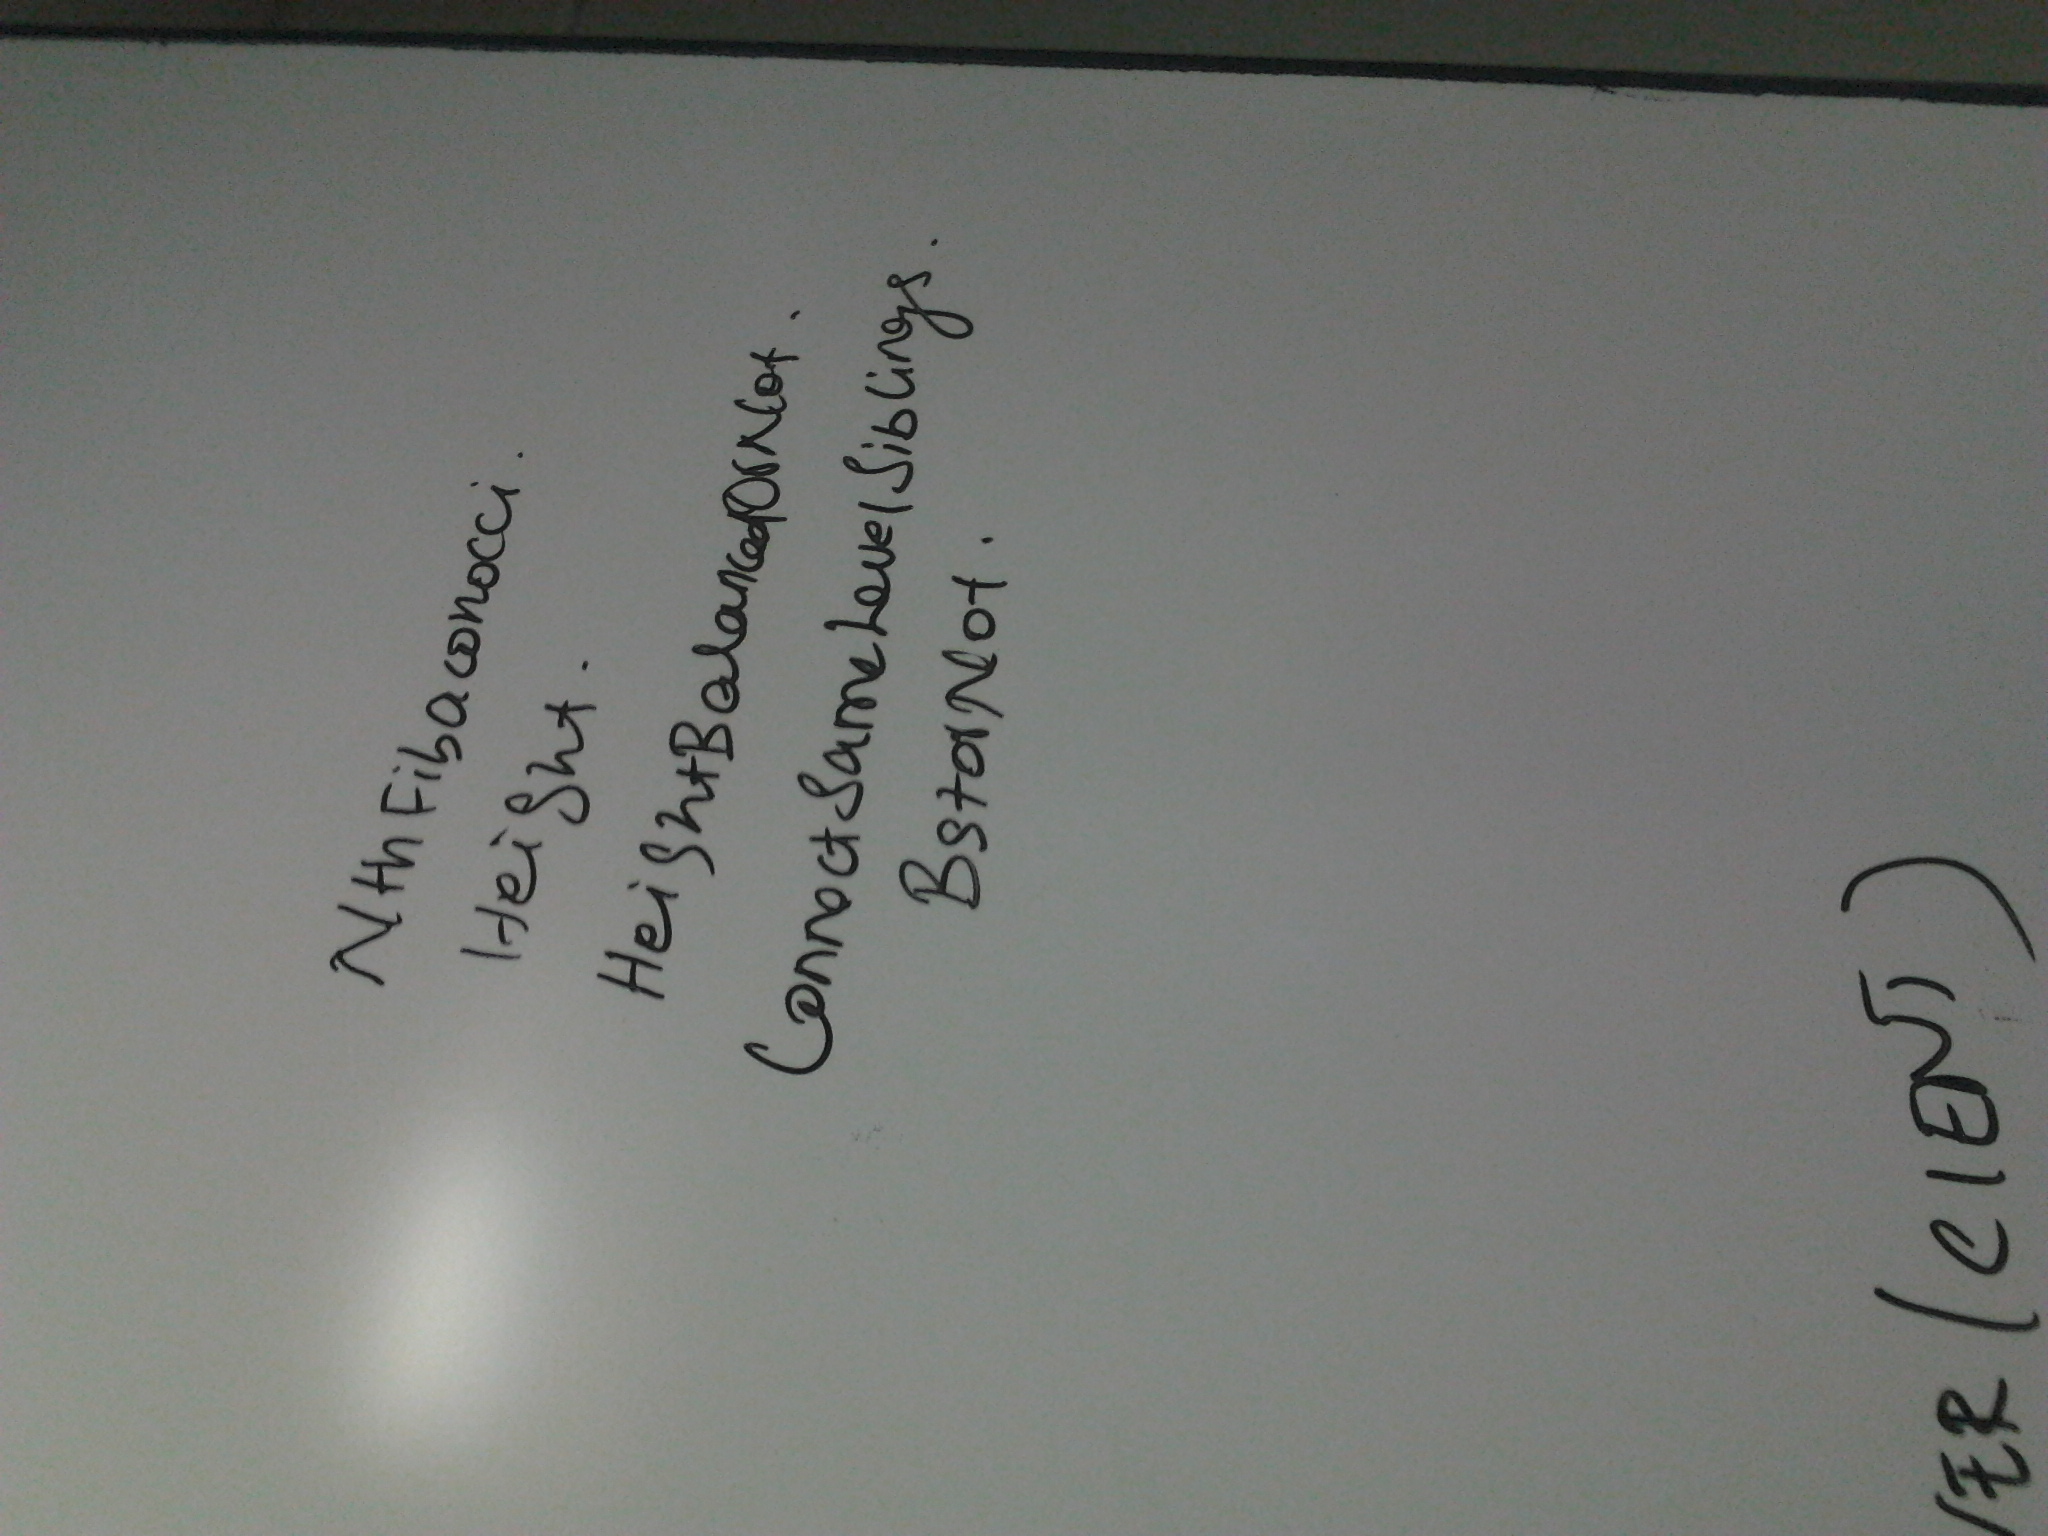 NthFibaconocci.
Height.
HeightBalancedOrNot.
ConnectSameLevelSiblings.
BstorNot.
VER (CIENT)